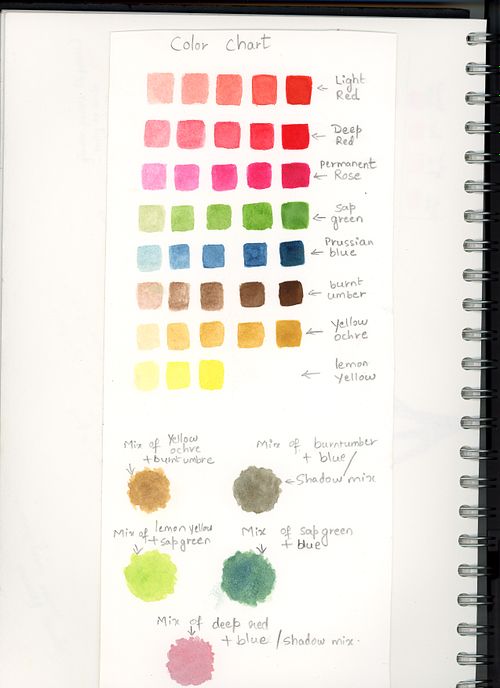 Color Chart
Light
Red
Deep
Red
Permanent
Rose
sap
green
Prussian
blue
burnt
umber
Yellow
ochre
lemon
Yellow
Mix of Yellow
ochre
+ burnt umbre
Mix of burntumber
+ blue/
Shadow mix
Mix of lemon yellow
+ sap green
Mix of sap green
+ blue
Mix of deep red
+ blue / shadow mix.